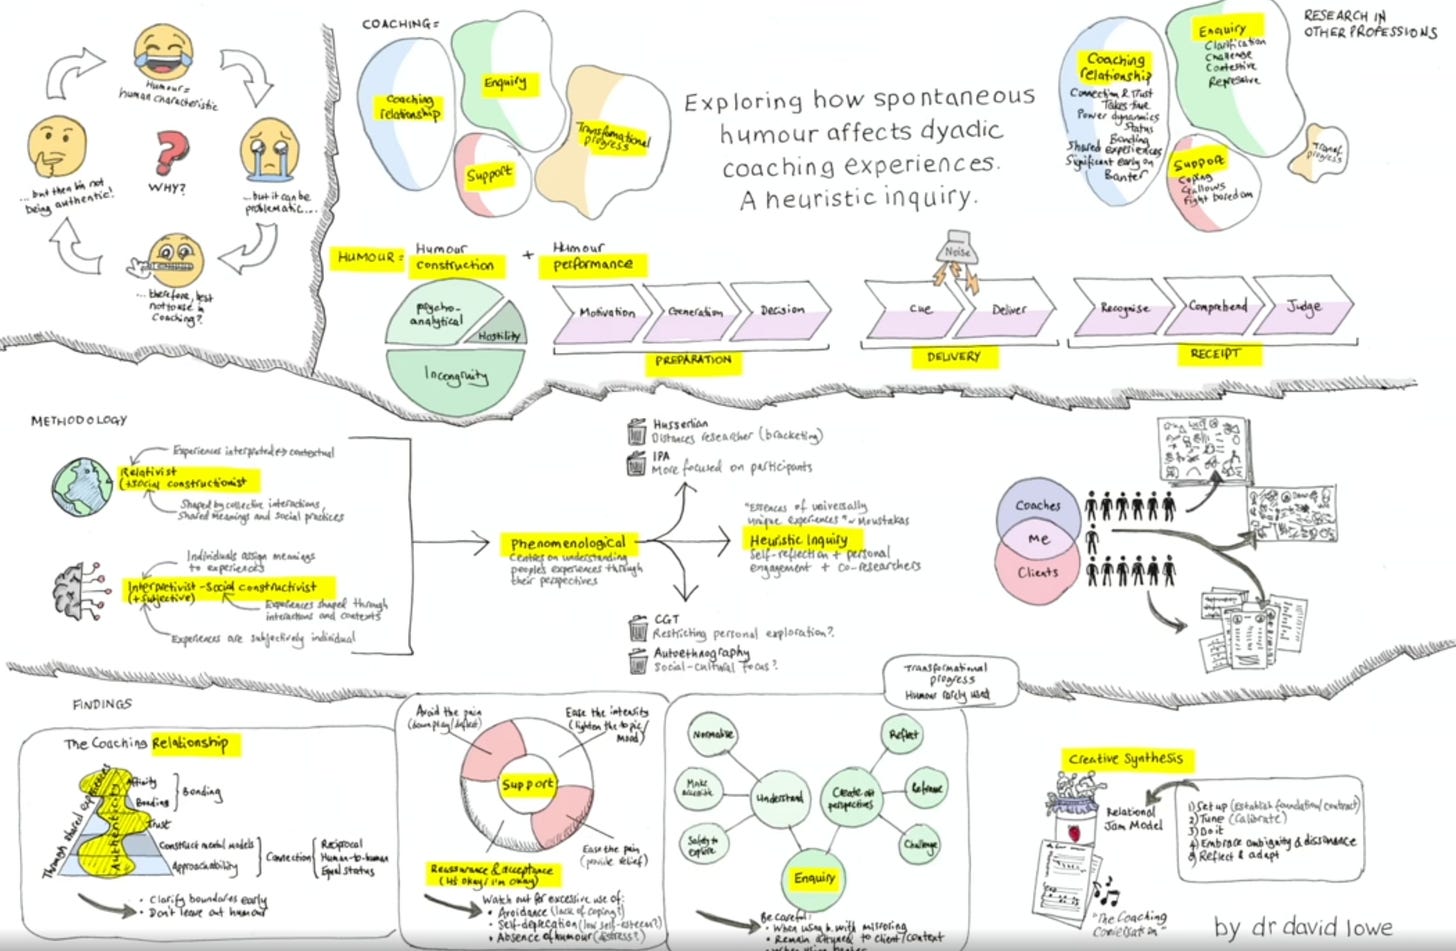 Humour =
human characteristic
...but it can be
problematic...
...therefore, best
not to use in
Coaching?
...but then I'm not
being authentic!
WHY?
COACHING =
Coaching
relationship
Enquiry
Support
Transformational
progress
Exploring how spontaneous
humour affects dyadic
coaching experiences.
A heuristic inquiry.
RESEARCH IN
OTHER PROFESSIONS
Coaching
relationship
Connection & Trust
Takes time
Power dynamics
Status
Bonding
Shared experiences
Significant early on
Banter
Enquiry
Clarification
Challenge
Contestive
Repressive
Support
Coping
Gallows
Fight boredom
Transf.
progress
HUMOUR =
Humour
construction
+
Humour
performance
psycho-
analytical
Hostility
Incongruity
Motivation
Generation
Decision
PREPARATION
Noise
Cue
Deliver
DELIVERY
Recognise
Comprehend
Judge
RECEIPT
METHODOLOGY
Experiences interpreted ↔ contextual
Relativist
(+social constructionist
Shaped by collective interactions,
Shared meanings and social practices
Individuals assign meanings
to experiences
Interpretivist-Social constructivist
(+subjective)
Experiences shaped through
interactions and contexts
Experiences are subjectively individual
Phenomenological
Centres on understanding
people's experiences through
their perspectives
Husserlian
Distances researcher (bracketing)
IPA
More focused on participants
"Essences of universally
unique experiences" ~ Moustakas
Heuristic Inquiry
Self-reflection + personal
engagement + co-researchers
CGT
Restricting personal exploration?
Autoethnography
Social-cultural focus?
Coaches
Me
Clients
FINDINGS
The Coaching Relationship
Through shared experiences
Authenticity
Affinity
Bonding
Trust
Bonding
Construct mental models
Approachability
Connection
Reciprocal
Human-to-human
Equal status
• Clarify boundaries early
• Don't leave out humour
Avoid the pain
(downplay/deflect)
Ease the intensity
(lighten the topic/
mood)
Support
Ease the pain
(provide relief)
Reassurance & acceptance
(it's okay/I'm okay)
Watch out for excessive use of:
• Avoidance (lack of coping?)
• Self-deprecation (low self-esteem?)
• Absence of humour (distress?)
Transformational
progress
Humour rarely used
Normalise
Make
accessible
Safety to
explore
Understand
Create alt
perspectives
Reflect
Reframe
Challenge
Enquiry
Be careful:
• When using b. with mirroring
• Remain attuned to client/context
Creative Synthesis
Relational
Jam Model
1) Set up (establish foundation/contract)
2) Tune (calibrate)
3) Do it
4) Embrace ambiguity & dissonance
5) Reflect & adapt
"The Coaching
Conversation"
by dr david lowe